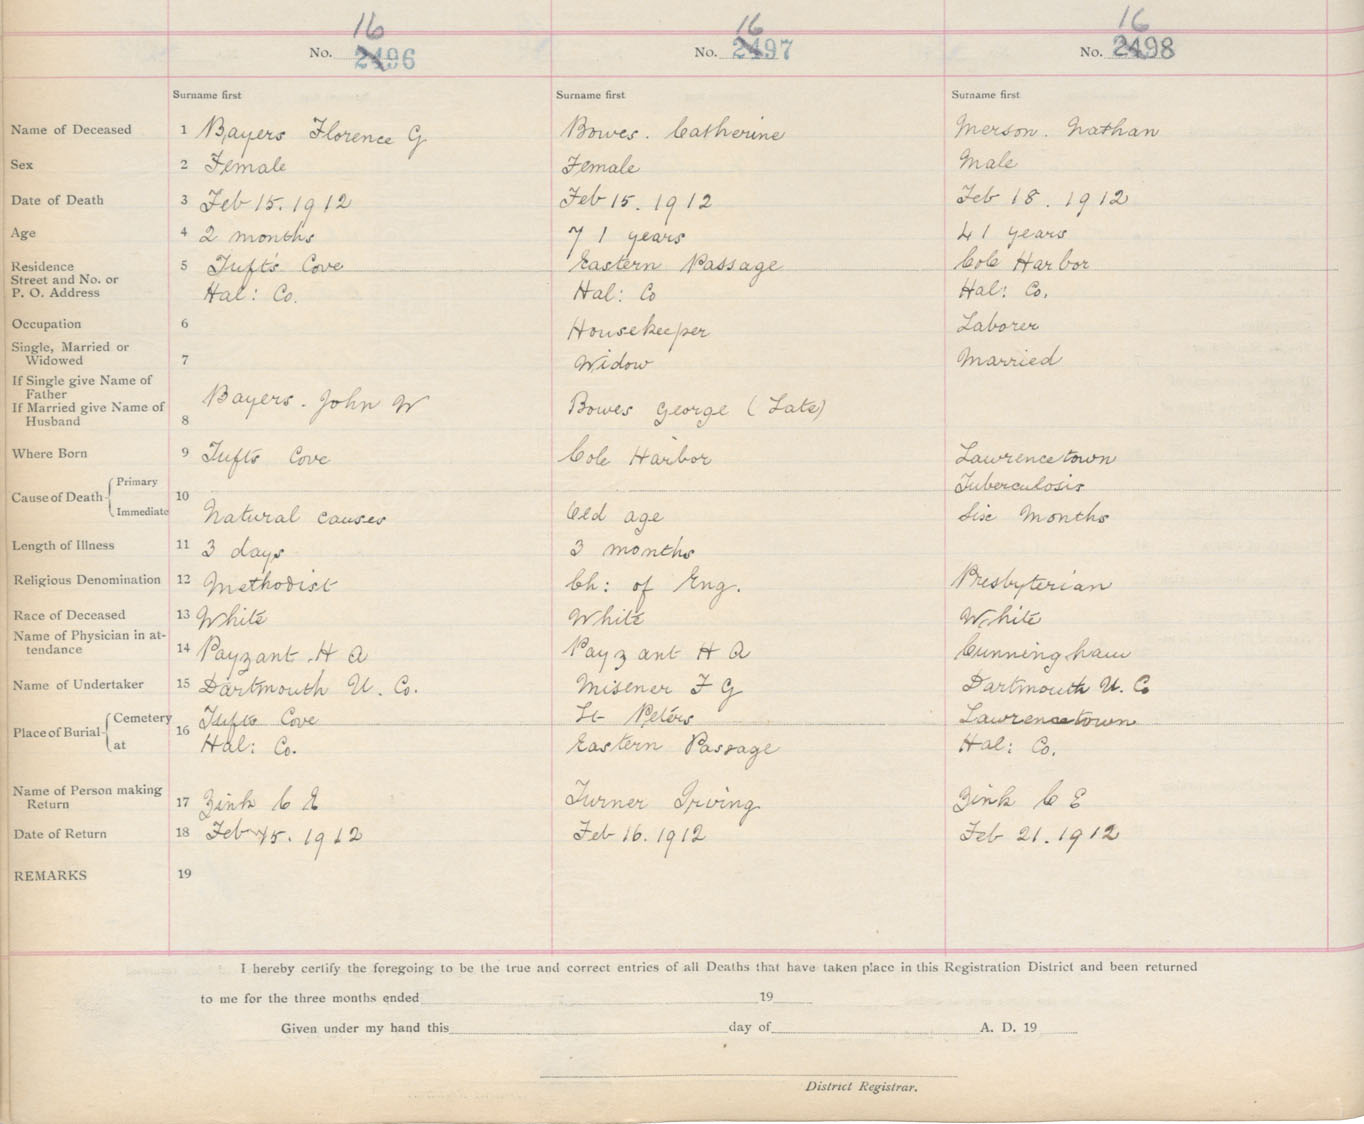 16 16 16
No. 2496 No. 2497 No. 2498
Surname first Surname first Surname first
Name of Deceased 1 Bayers Florence G Bowes. Catherine Merson. Nathan
Sex 2 Female Female Male
Date of Death 3 Feb 15. 1912 Feb 15. 1912 Feb 18. 1912
Age 4 2 months 71 years 41 years
Residence 5 Tuft's Cove Eastern Passage Cole Harbor
Street and No. or
P. O. Address Hal: Co. Hal: Co Hal: Co.
Occupation 6 Housekeeper Laborer
Single, Married or
Widowed 7 Widow Married
If Single give Name of
Father
If Married give Name of Bayers. John W Bowes George (Late)
Husband 8
Where Born 9 Tufts Cove Cole Harbor Lawrencetown
Primary Tuberculosis
Cause of Death 10
Immediate Natural causes Old age Six Months
Length of Illness 11 3 days 3 months
Religious Denomination 12 Methodist Ch: of Eng. Presbyterian
Race of Deceased 13 White White White
Name of Physician in at-
tendance 14 Payzant. H A Payzant H A Cunningham
Name of Undertaker 15 Dartmouth U. Co. Misener F G Dartmouth U. C
Cemetery Tufts Cove St Peters Lawrencetown
Place of Burial 16
at Hal: Co. Eastern Passage Hal: Co.
Name of Person making
Return 17 Zink C E Turner Irving Zink C E
Date of Return 18 Feb 15. 1912 Feb 16. 1912 Feb 21. 1912
REMARKS 19
I hereby certify the foregoing to be the true and correct entries of all Deaths that have taken place in this Registration District and been returned
to me for the three months ended 19
Given under my hand this day of A. D. 19
District Registrar.